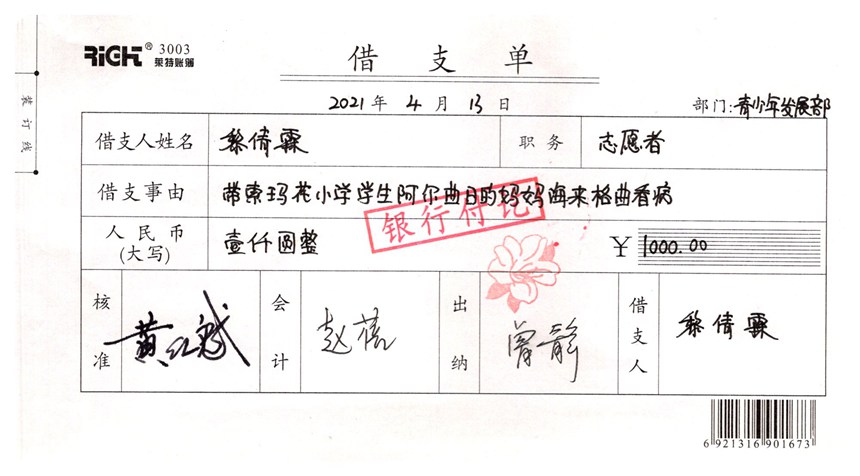 RIGHT® 3003
莱特账簿
借支单
2021年4月13日
部门:青少年发展部
装订线
借支人姓名 黎倩霖 职务 志愿者
借支事由 带索玛花小学学生阿尔曲日的妈妈海来格曲看病
银行付讫
人民币(大写) 壹仟圆整 ¥ 1000.00
核准 会计 赵蓓 出纳 曾静 借支人 黎倩霖
6 921316 901673